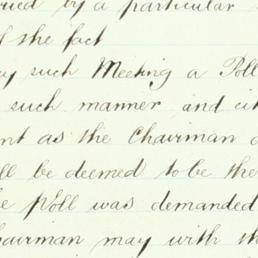 by a particular
the fact
such Meeting a Poll
such manner and
as the Chairman
be deemed to be the
Poll was demanded
may with the